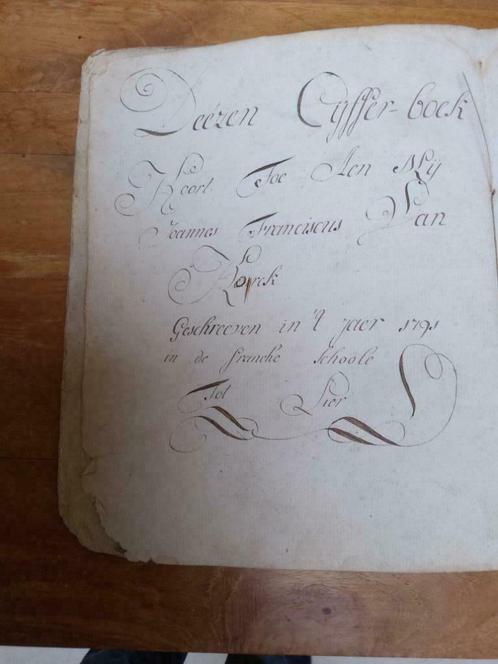 Deézen Cijffer-boek
Hoort Toe Aen Mij
Joannes Franciscus Van
Kerck
Geschreeven in 't jaer 1791
in de franche schoole
Tot Lier